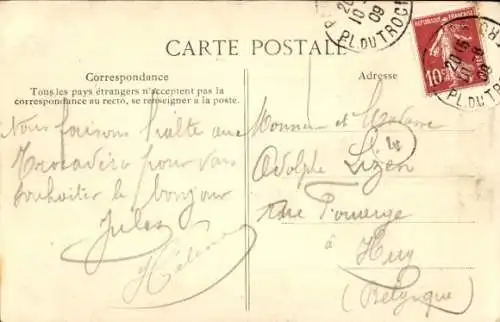 CARTE POSTALE
Correspondance
Tous les pays étrangers n'acceptent pas la
correspondance au recto, se renseigner a la poste.
Adresse
Nous faisons halte au
Trocadéro pour vous
souhaiter le bonjour
Jules
Hélène
Monsieur et Madame
Adolphe Lizen
rue
à
Huy
(Belgique)
REPUBLIQUE FRANÇAISE
10
PL. DU TROC
10
09
PL. DU TROC